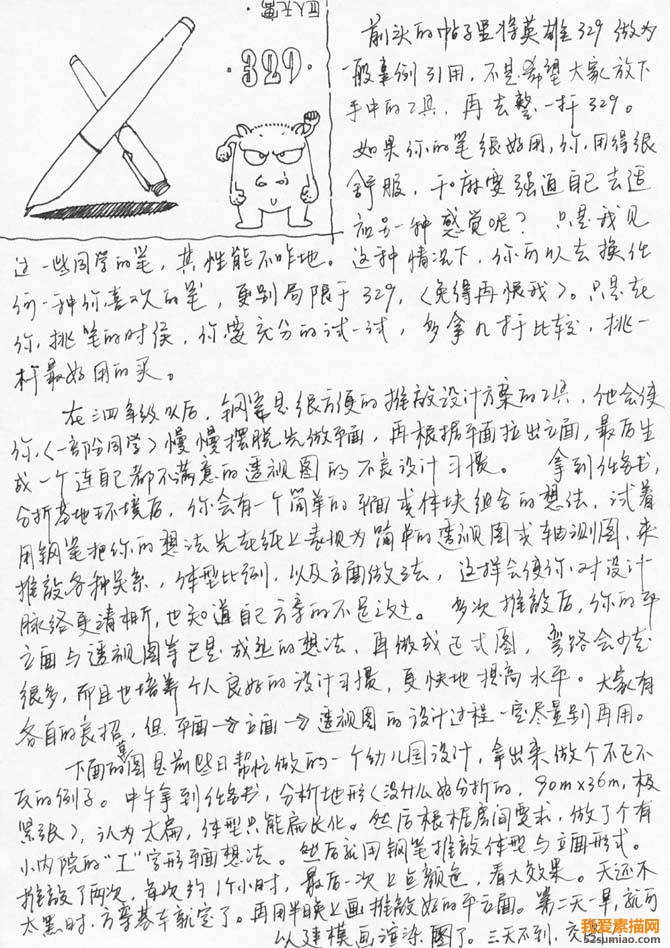 匠人无寓
·329·
前头的帖子里将英雄329做为
一般案例引用,不是希望大家放下
手中的工具,再去整一杆329。
如果你的笔很好用,你用得很
舒服,干麻要强迫自己去适
应另一种感觉呢?只是我见
过一些同学的笔,其性能不咋地。这种情况下,你可以去换任
何一种你喜欢的笔,更别局限于329,(免得再恨我)。只是在
你挑笔的时侯,你要充分的试一试,多拿几杆比较,挑一
杆最好用的买。
在三四年级以后,钢笔是很方便的推敲设计方案的工具,他会使
你(一部份同学)慢慢摆脱先做平面,再根据平面拉出立面,最后生
成一个连自己都不满意的透视图的不良设计习摄。 拿到任务书,
分析基地环境后,你会有一个简单的平面或体块组合的想法,试着
用钢笔把你的想法先在纸上表现为简单的透视图或轴测图,来
推敲各种关系,体型比例,以及立面做法,这样会使你对设计
脉络更清晰,也知道自己方案的不足之处。 多次推敲后,你的平
立面与透视图等已是成熟的想法,再做成正式图,弯路会少走
很多,而且也培养个人良好的设计习摄,更快地提高水平。大家有
各自的良招,但平面→立面→透视图的设计过程一定尽量别再用。
下面的草图是前些日帮忙做的一个幼儿园设计,拿出来做个不已不
反的例子。中午拿到任务书,分析地形(没什么好分析的,90m×36m,极
紧张),认为太扁,体型只能扁长化。然后根据房间要求,做了个有
小内院的“工”字形平面想法。然后就用钢笔推敲体型与立面形式。
推敲了两次,每次约1个小时,最后一次上点颜色,看大效果。天还不
太黑时,方案基本就定了。再用半晚上画推敲好的平立面。第二天一早,就可
以建模画渲染图了。三天不到,
我爱素描网
52sumiao.com